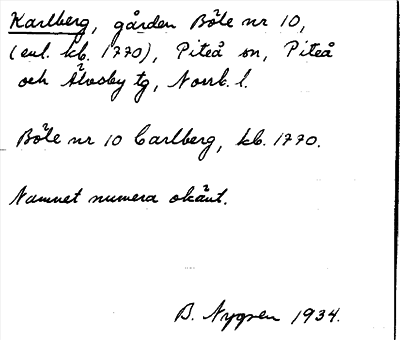 Karlberg, gården Böle nr 10,
(enl. kb. 1770), Piteå sn, Piteå
och Älvsby tg, Norrb. l.
Böle nr 10 Carlberg, kb. 1770.
Namnet numera okänt.
B. Nygren 1934.